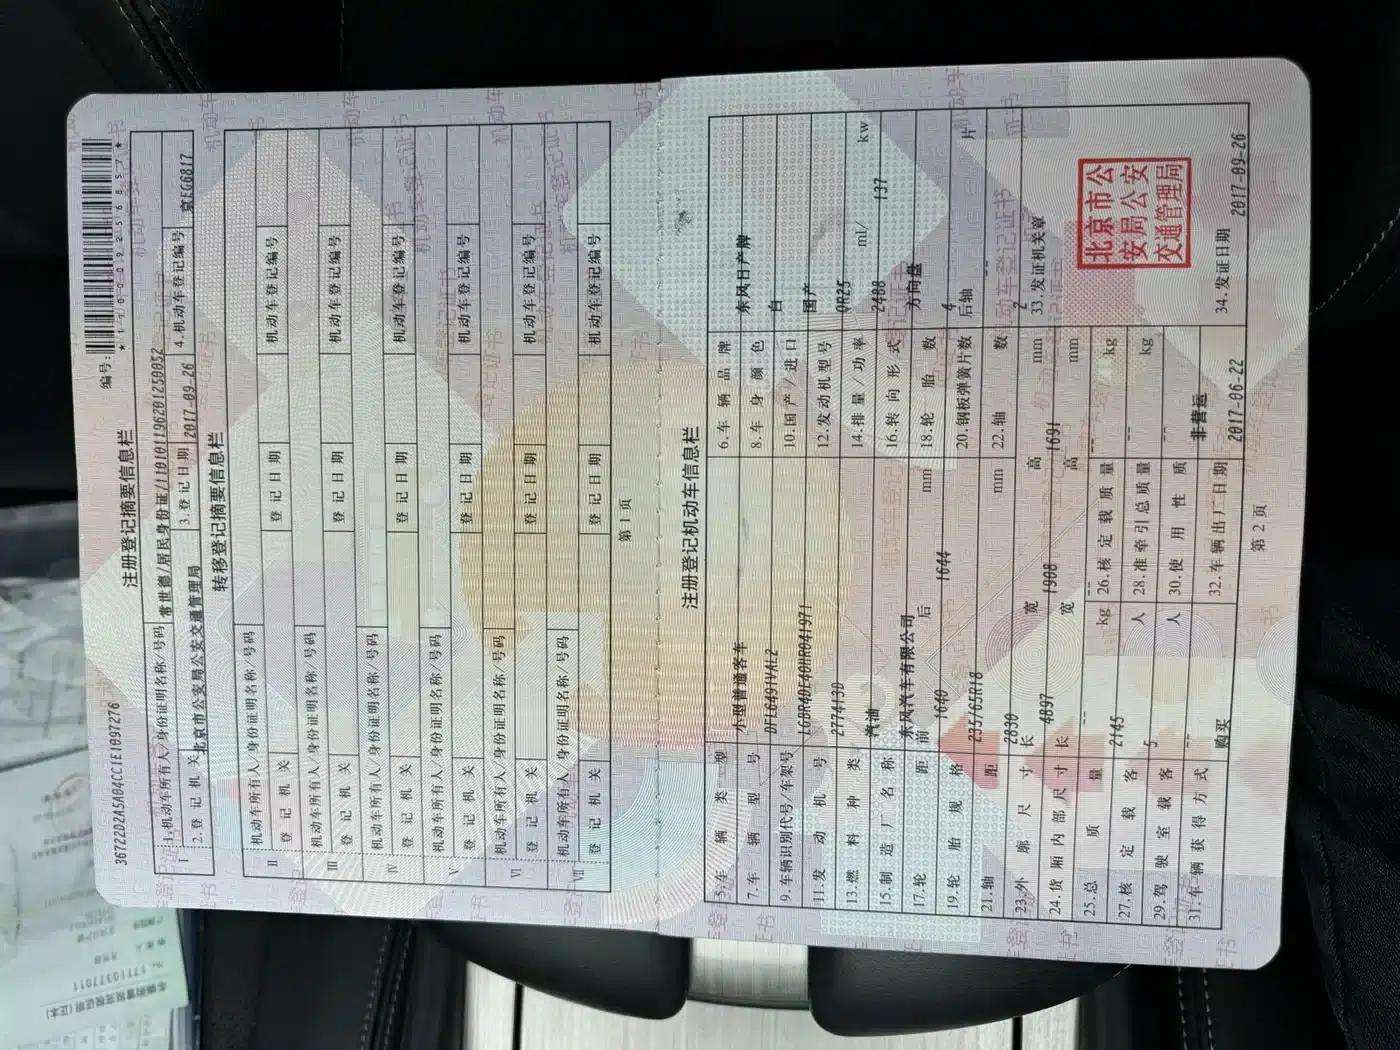 36722D2A5A84CC1E1097276 编号: *110009256857*
注册登记摘要信息栏
I 1.机动车所有人/身份证明名称/号码 常世德/居民身份证/110101196201250052
2.登记机关 北京市公安局公安交通管理局 3.登记日期 2017-09-26 4.机动车登记编号 京EG6817
转移登记摘要信息栏
II 机动车所有人/身份证明名称/号码
登记机关 登记日期 机动车登记编号
III 机动车所有人/身份证明名称/号码
登记机关 登记日期 机动车登记编号
IV 机动车所有人/身份证明名称/号码
登记机关 登记日期 机动车登记编号
V 机动车所有人/身份证明名称/号码
登记机关 登记日期 机动车登记编号
VI 机动车所有人/身份证明名称/号码
登记机关 登记日期 机动车登记编号
VII 机动车所有人/身份证明名称/号码
登记机关 登记日期 机动车登记编号
第1页
注册登记机动车信息栏
5.车辆类型 小型普通客车 6.车辆品牌 东风日产牌
7.车辆型号 DFL6491VAL2 8.车身颜色 白
9.车辆识别代号/车架号 LGBR4DE40HR041971 10.国产/进口 国产
11.发动机号 277413D 12.发动机型号 QR25
13.燃料种类 汽油 14.排量/功率 2488 ml/ 137 kw
15.制造厂名称 东风汽车有限公司 16.转向形式 方向盘
17.轮距 前 1640 后 1644 mm 18.轮胎数 4
19.轮胎规格 235/65R18 20.钢板弹簧片数 后轴 -- 片
21.轴距 2830 mm 22.轴数 2
23.外廓尺寸 长 4897 宽 1908 高 1691 mm 33.发证机关章
24.货厢内部尺寸 长 宽 高 mm
25.总质量 2145 kg 26.核定载质量 -- kg
27.核定载客 5 人 28.准牵引总质量 -- kg
29.驾驶室载客 -- 人 30.使用性质 非营运
31.车辆获得方式 购买 32.车辆出厂日期 2017-06-22 34.发证日期 2017-09-26
北京市公
安局公安
交通管理局
第2页
No. 17110377011